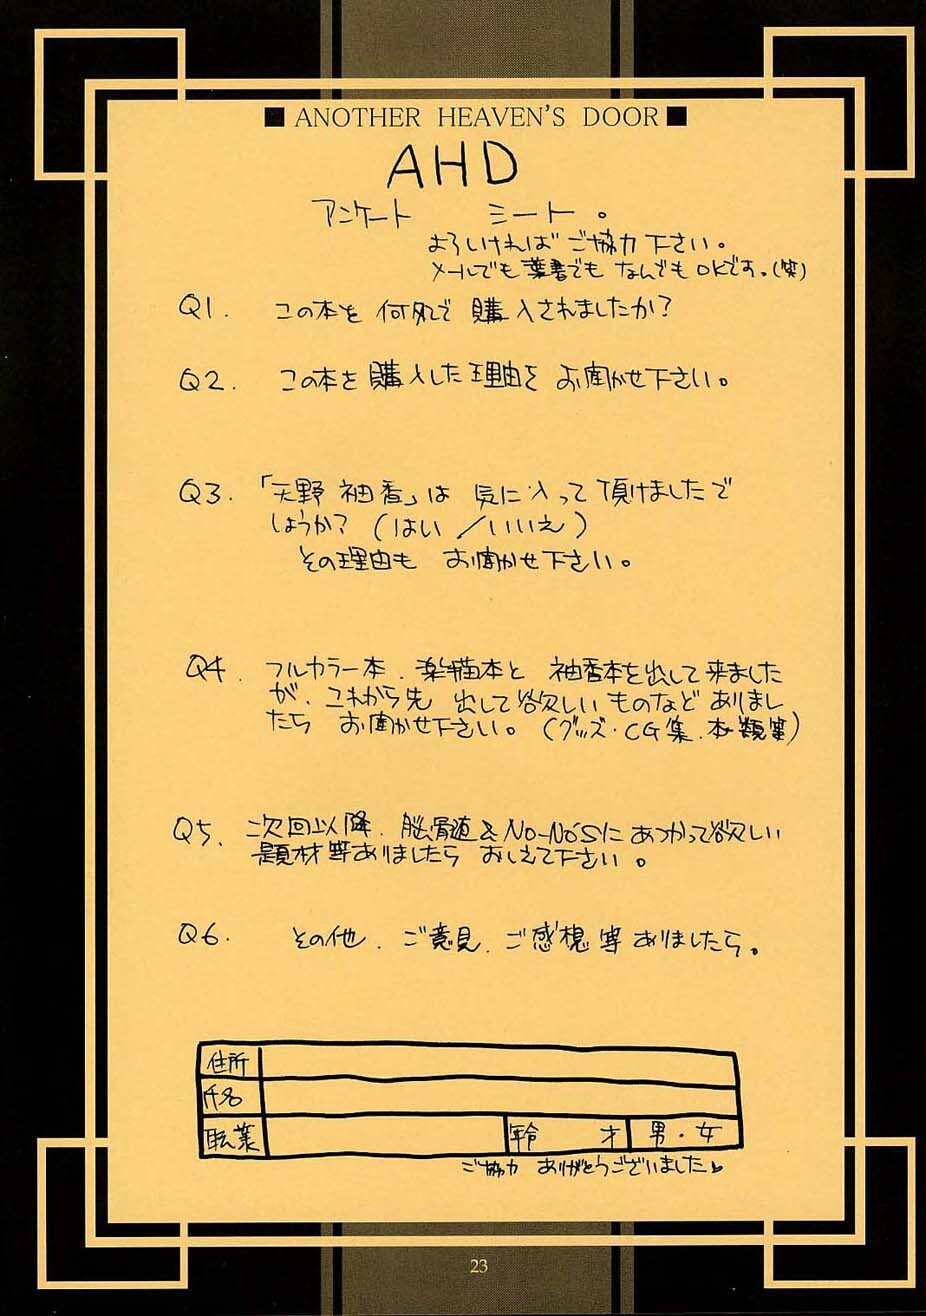 ■ ANOTHER HEAVEN'S DOOR ■
AHD
アンケート シート。
よろしければ ご協力 下さい。
メールでも 葉書でも なんでも OKです。(笑)
Q1. この本を 何処で 購入されましたか?
Q2. この本を 購入した 理由を お聞かせ下さい。
Q3. 「天野 袖香」は 気に入って 頂けましたで
しょうか? (はい / いいえ)
その理由も お聞かせ下さい。
Q4. フルカラー本. 楽描本と 袖香本を出して来ました
が、これから先 出して欲しい ものなど ありまし
たら お聞かせ下さい。 (グッズ・CG集. 本類等)
Q5. 次回以降. 脳骨髄&NO-NO'Sに あつかって欲しい
題材等ありましたら おしえて下さい。
Q6. その他. ご意見. ご感想等 ありましたら。
住所
氏名
職業 年令 才 男・女
ご協力 ありがとうございました
23